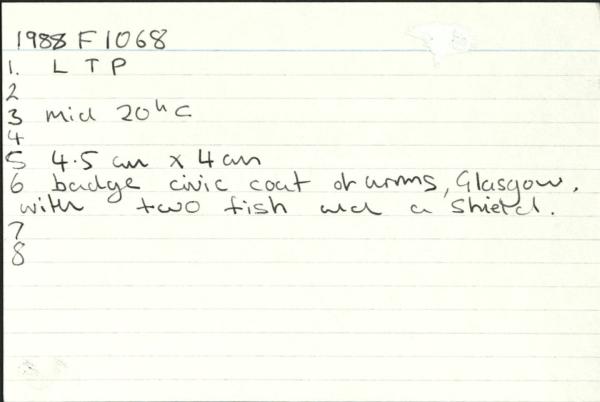 1988 F1068
1. L T P
2
3 mid 20th C
4
5 4.5 cm x 4cm
6 badge civic coat of arms, Glasgow,
with two fish and a shield.
7
8